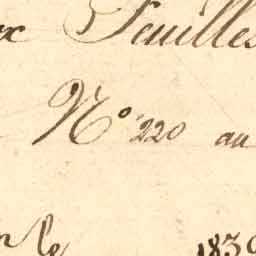 Feuilles
N° 220 au
le 183